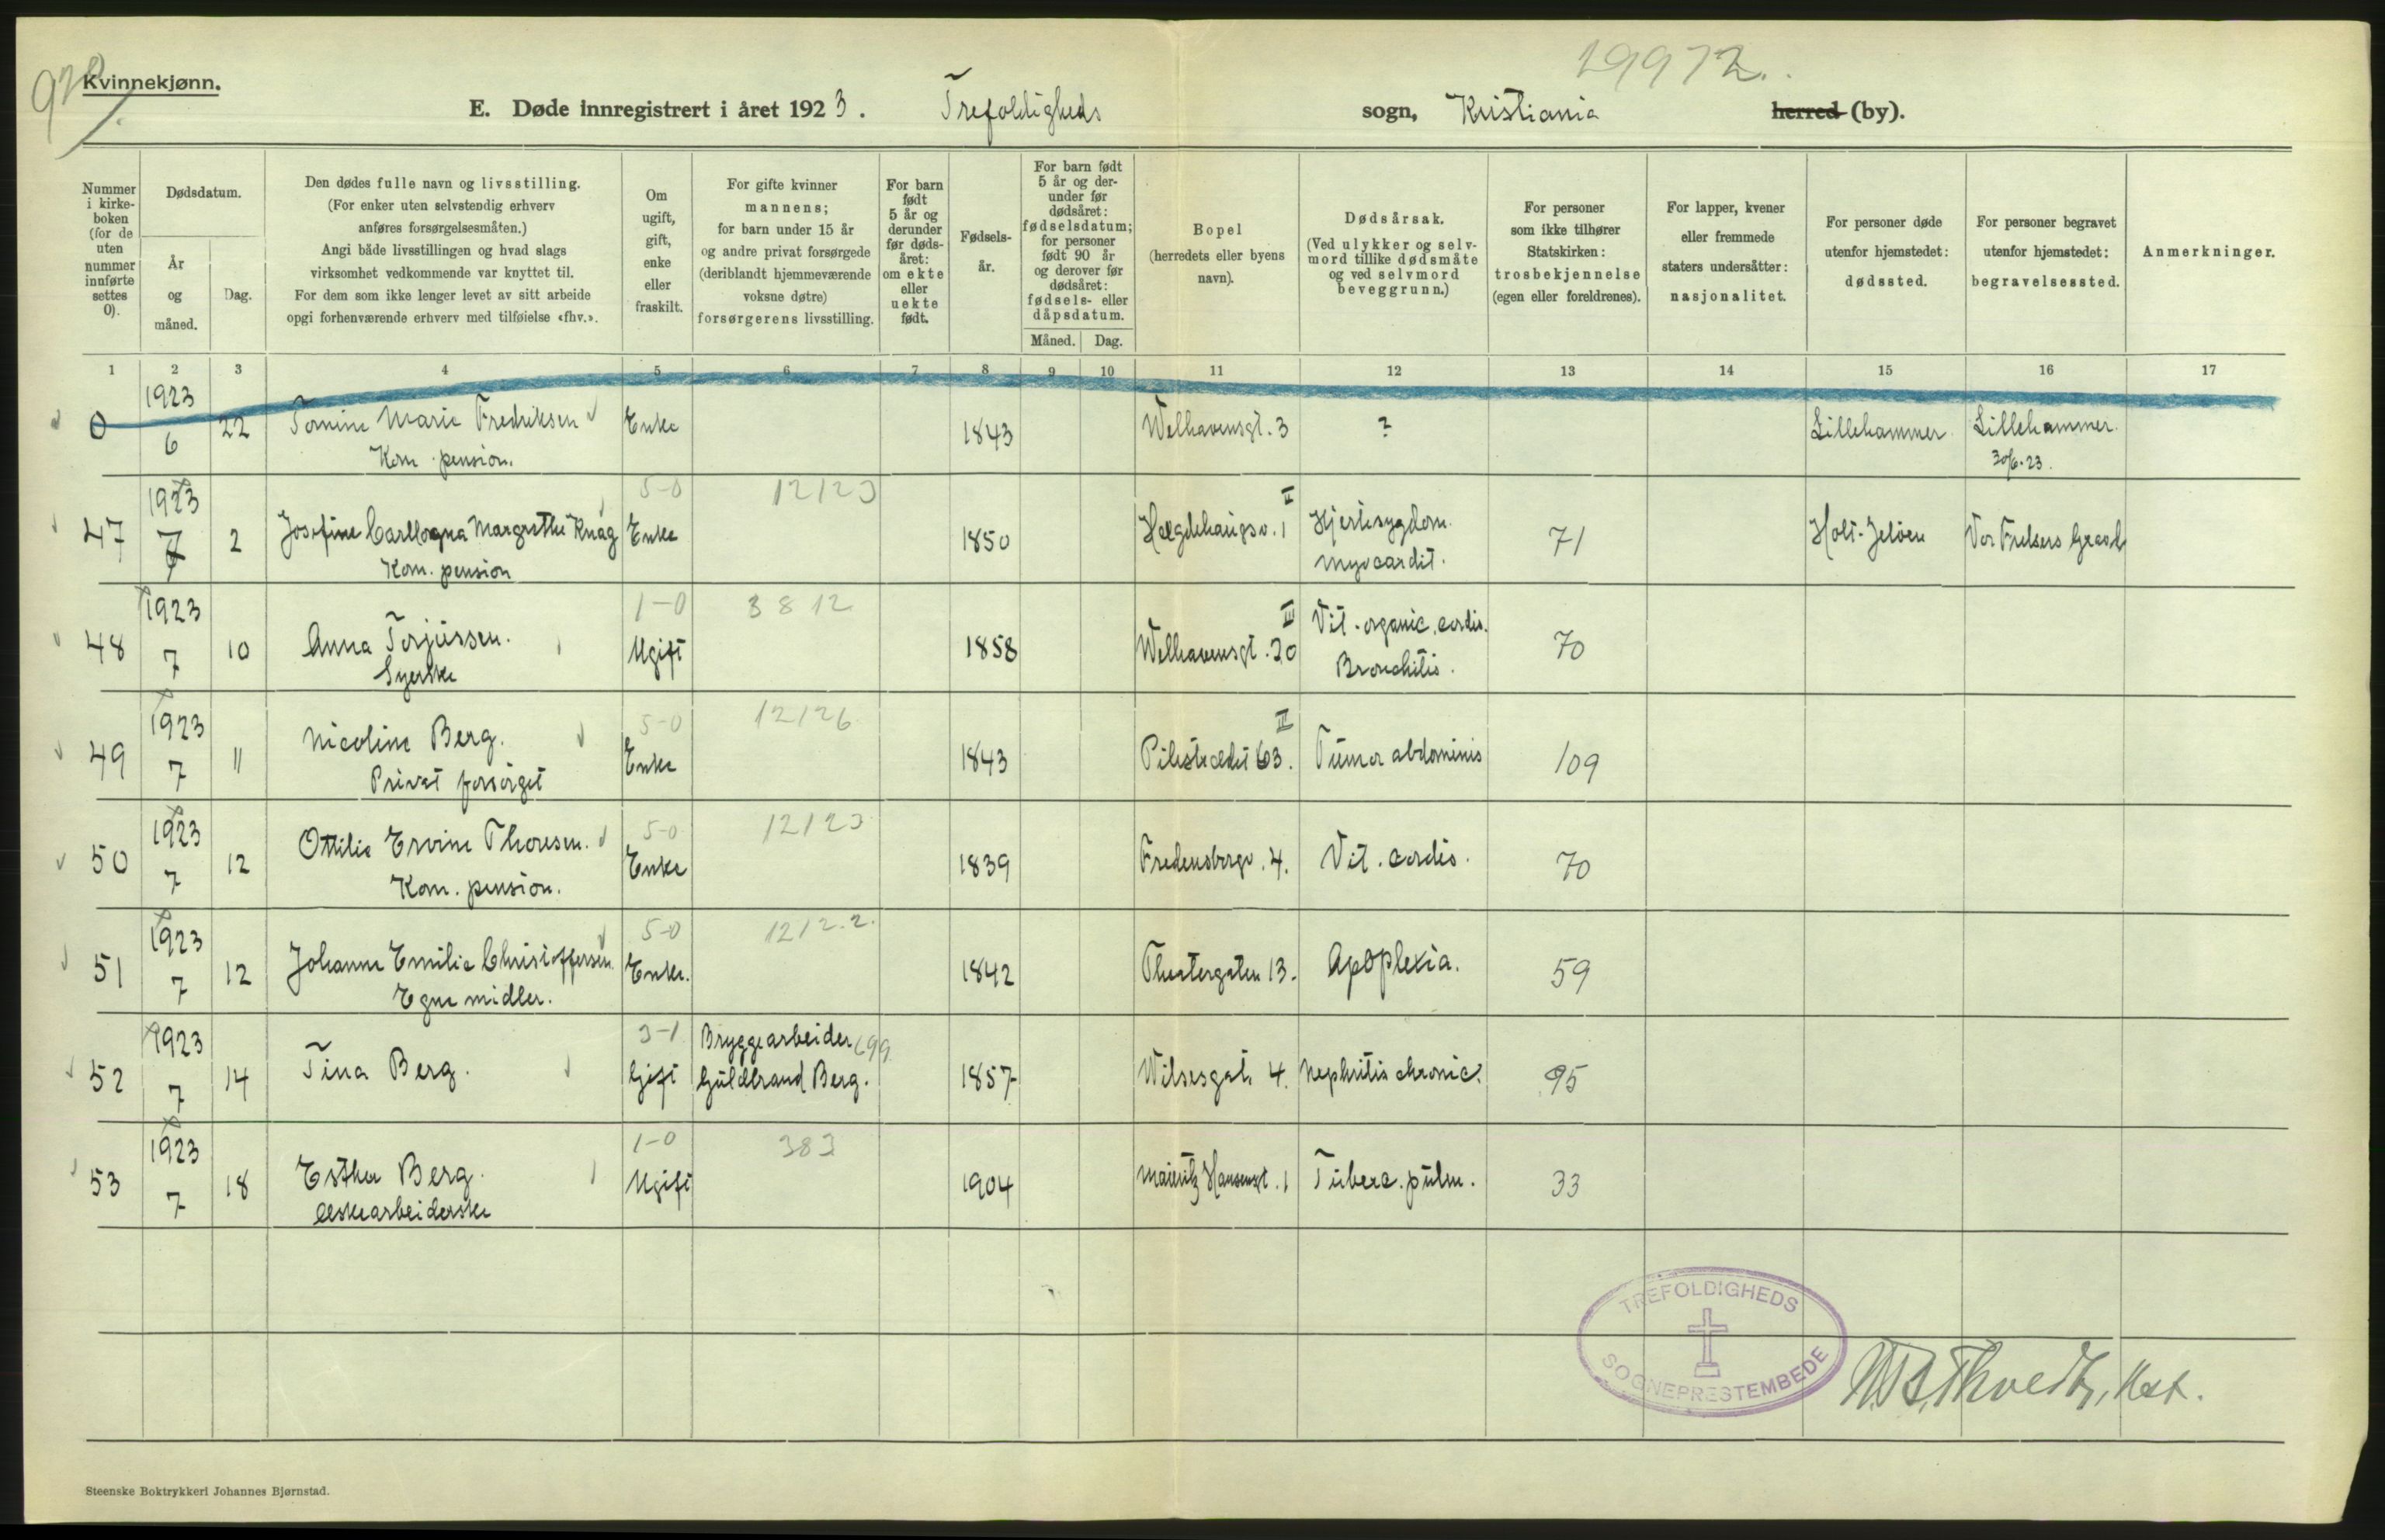 Kvinnekjønn.
19972.
E. Døde innregistrert i året 1923. Trefoldigheds sogn, Kristiania herred (by).
Nummer i kirkeboken (for de uten nummer innførte settes 0).
Dødsdatum.
År og måned.
Dag.
Den dødes fulle navn og livsstilling.
(For enker uten selvstendig erhverv
anføres forsørgelsesmåten.)
Angi både livsstillingen og hvad slags
virksomhet vedkommende var knyttet til.
For dem som ikke lenger levet av sitt arbeide
opgi forhenværende erhverv med tilføielse «fhv.».
Om ugift, gift, enke eller fraskilt.
For gifte kvinner
mannens;
for barn under 15 år
og andre privat forsørgede
(deriblandt hjemmeværende
voksne døtre)
forsørgerens livsstilling.
For barn født 5 år og derunder før dødsåret: om ekte eller uekte født.
Fødselsår.
For barn født 5 år og derunder før dødsåret: fødselsdatum; for personer født 90 år og derover før dødsåret: fødsels- eller dåpsdatum.
Måned. Dag.
Bopel
(herredets eller byens
navn).
Dødsårsak.
(Ved ulykker og selvmord tillike dødsmåte og ved selvmord beveggrunn.)
For personer
som ikke tilhører
Statskirken:
trosbekjennelse
(egen eller foreldrenes).
For lapper, kvener
eller fremmede
staters undersåtter:
nasjonalitet.
For personer døde
utenfor hjemstedet:
dødssted.
For personer begravet
utenfor hjemstedet:
begravelsessted.
Anmerkninger.
1 2 3 4 5 6 7 8 9 10 11 12 13 14 15 16 17
0 1923 6 22 Tomine Marie Fredriksen Enke 1843 Welhavensgt. 3 ? Lillehammer Lillehammer.
Kom. pension. 30/6-23.
5-0 12123 II
47 1923 7 2 Josefine Margrethe Knag Enke 1850 Hægdehaugsv. 1 Hjertesygdom. 71 Holt-Jeløen Vor Frelsers Gravl
Kom. pension myocardit.
1-0 3812 III
48 1923 7 10 Anna Torjussen. Ugift 1858 Welhavensgt. 20 Vit. organic. cordis. 70
Syerske Bronchitis.
5-0 12126 II
49 1923 7 11 Nicoline Berg. Enke 1843 Pilestrædet 63. Tumor abdominis 109
Privat forsørget
5-0 12123
50 1923 7 12 Ottilie Ervine Thoresen. Enke 1839 Fredensborgv. 4. Vit. cordis. 70
Kom. pension.
5-0 1212.2.
51 1923 7 12 Johanne Emilie Christoffersen Enke. 1842 Theatergaten 13. Apoplexia. 59
Egne midler.
3-1 Bryggearbeider 699
52 1923 7 14 Tina Berg. Gift Guldbrand Berg. 1857 Wilsesgat. 4. Nephritis chronic. 95
1-0 383
53 1923 7 18 Esther Berg. Ugift 1904 Mauritz Hansensgt. 1 Tuberc. pulm. 33
Æskearbeiderske
TREFOLDIGHEDS
SOGNEPRESTEMBEDE
Steenske Boktrykkeri Johannes Bjørnstad.